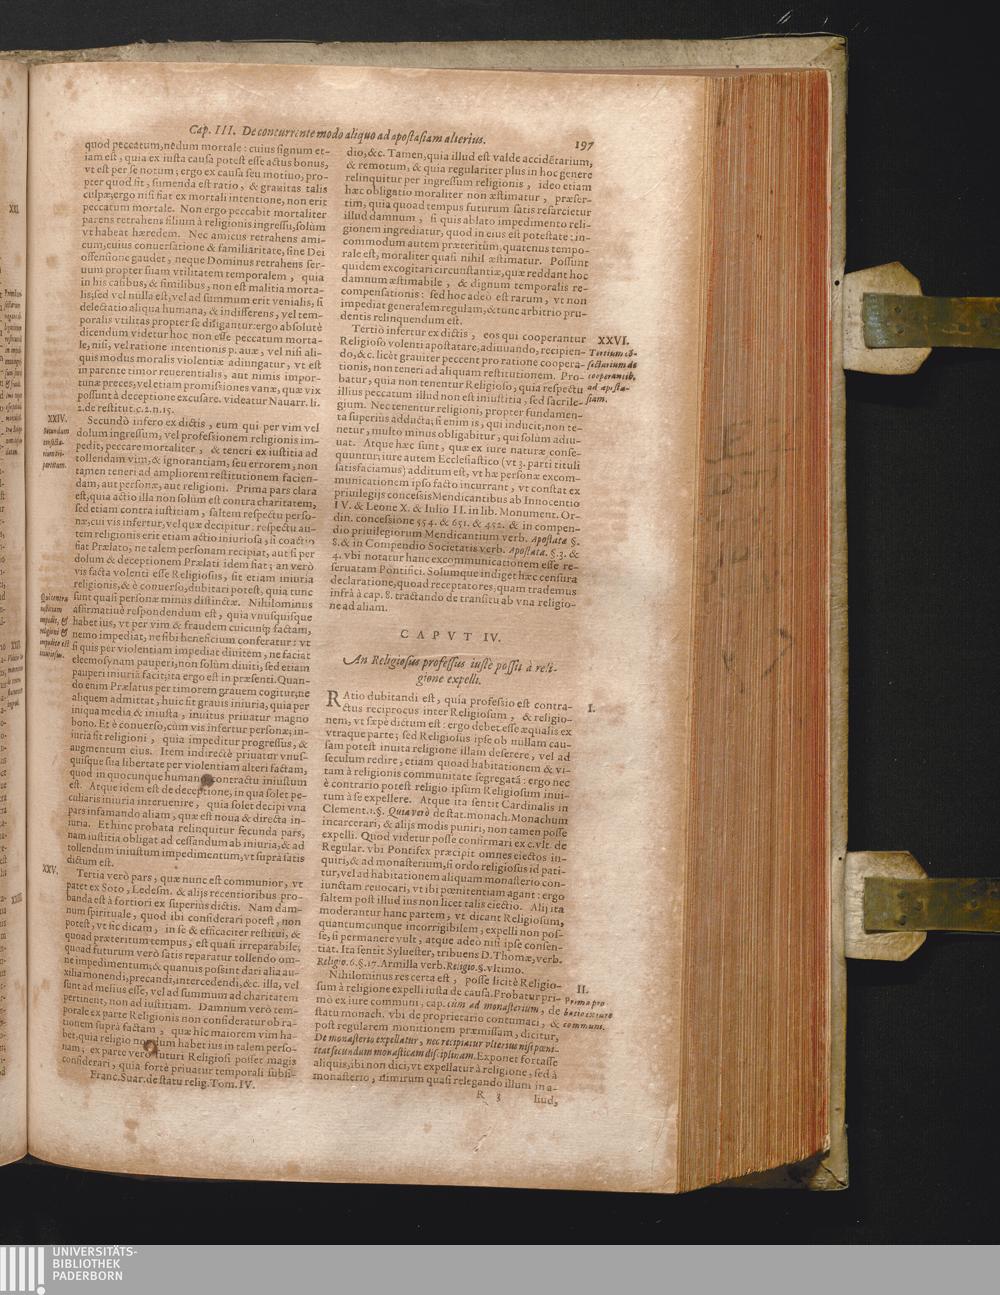 Cap. III. De concurrente modo aliquo ad apostasiam alterius.
197
quod peccatum, nedum mortale: cuius signum et-
iam est, quia ex iusta causa potest esse actus bonus,
vt est per se notum; ergo ex causa seu motiuo, pro-
pter quod fit, sumenda est ratio, & grauitas talis
culpæ; ergo nisi fiat ex mortali intentione, non erit
peccatum mortale. Non ergo peccabit mortaliter
parens retrahens filium à religionis ingressu, solùm
vt habeat hæredem. Nec amicus retrahens ami-
cum, cuius conuersatione & familiaritate, sine Dei
offensione gaudet, neque Dominus retrahens ser-
uum propter suam vtilitatem temporalem, quia
in his casibus, & similibus, non est malitia morta-
lis; sed vel nulla est, vel ad summum erit venialis, si
delectatio aliqua humana, & indifferens, vel tem-
poralis vtilitas propter se diligantur: ergo absolutè
dicendum videtur hoc non esse peccatum morta-
le, nisi, vel ratione intentionis prauæ, vel nisi ali-
quis modus moralis violentiæ adiungatur, vt est
in parente timor reuerentialis, aut nimis impor-
tunæ preces, vel etiam promissiones vanæ, quæ vix
possunt à deceptione excusare. videatur Nauarr. li.
2. de restitut. c. 2. n. 15.
XXIV.
Secundum
consecta-
rium tri-
partitum.
Secundò infero ex dictis, eum qui per vim vel
dolum ingressum, vel professionem religionis im-
pedit, peccare mortaliter, & teneri ex iustitia ad
tollendam vim, & ignorantiam, seu errorem, non
tamen teneri ad ampliorem restitutionem facien-
dam, aut personæ, aut religioni. Prima pars clara
est, quia actio illa non solùm est contra charitatem,
sed etiam contra iustitiam, saltem respectu perso-
næ, cui vis infertur, vel quæ decipitur: respectu au-
tem religionis erit etiam actio iniuriosa, si coactio
fiat Prælato, ne talem personam recipiat, aut si per
dolum & deceptionem Prælati idem fiat; an verò
vis facta volenti esse Religiosus, sit etiam iniuria
religionis, & è conuerso, dubitari potest, quia tunc
sunt quasi personæ minus distinctæ. Nihilominus
affirmatiuè respondendum est, quia vnusquisque
habet ius, vt per vim & fraudem cuicunq; factam,
nemo impediat, ne sibi beneficium conferatur: vt
si quis per violentiam impediat diuitem, ne faciat
eleemosynam pauperi, non solùm diuiti, sed etiam
pauperi iniuriã facit; ita ergo est in præsenti. Quan-
do enim Prælatus per timorem grauem cogitur, ne
aliquem admittat, huic fit grauis iniuria, quia per
iniqua media & iniusta, inuitus priuatur magno
bono. Et è conuerso, cùm vis infertur personæ; in-
iuria fit religioni, quia impeditur progressus, &
augmentum eius. Item indirectè priuatur vnus-
quisque sua libertate per violentiam alteri factam,
quod in quocunque humano contractu iniustum
est. Atque idem est de deceptione, in qua solet pe-
culiaris iniuria interuenire, quia solet decipi vna
pars infamando aliam, quæ est noua & directa in-
iuria. Et hinc probata relinquitur secunda pars,
nam iustitia obligat ad cessandum ab iniuria, & ad
tollendum iniustum impedimentum, vt suprà satis
dictum est.
XXV.
Tertia verò pars, quæ nunc est communior, vt
patet ex Soto, Ledesm. & alijs recentioribus pro-
banda est à fortiori ex superiùs dictis. Nam dam-
num spirituale, quod ibi considerari potest, non
potest, vt sic dicam, in se & efficaciter restitui, &
quoad præteritum tempus, est quasi irreparabile;
quoad futurum verò satis reparatur tollendo om-
ne impedimentum; & quanuis possint dari alia au-
xilia monendi, precandi, intercedendi, &c. illa, vel
sunt ad melius esse, vel ad summum ad charitatem
pertinent, non ad iustitiam. Damnum verò tem-
porale ex parte Religionis non consideratur ob ra-
tionem suprà factam, quæ hîc maiorem vim ha-
bet, quia religio nondum habet ius in talem perso-
nam; ex parte verò futuri Religiosi posset magis
considerari, quia fortè priuatur temporali subsi-
Franc. Suar. de statu relig. Tom. IV.
dio, &c. Tamen, quia illud est valde accidētarium,
& remotum, & quia regulariter plus in hoc genere
relinquitur per ingressum religionis, ideo etiam
hæc obligatio moraliter non æstimatur, præser-
tim, quia quoad tempus futurum satis resarcietur
illud damnum, si quis ablato impedimento reli-
gionem ingrediatur, quod in eius est potestate: in-
commodum autem præteritum, quatenus tempo-
rale est, moraliter quasi nihil æstimatur. Possunt
quidem excogitari circunstantiæ, quæ reddant hoc
damnum æstimabile, & dignum temporalis re-
compensationis: sed hoc adeò est rarum, vt non
impediat generalem regulam, & tunc arbitrio pru-
dentis relinquendum est.
XXVI.
Tertium cō-
sectarium de
cooperantib.
ad aposta-
siam.
Tertiò infertur ex dictis, eos qui cooperantur
Religioso volenti apostatare, adiuuando, recipien-
do, &c. licèt grauiter peccent pro ratione coopera-
tionis, non teneri ad aliquam restitutionem. Pro-
batur, quia non tenentur Religioso, quia respectu
illius peccatum illud non est iniustitia, sed sacrile-
gium. Nec tenentur religioni, propter fundamen-
ta superiùs adducta; si enim is, qui inducit, non te-
netur, multo minus obligabitur, qui solùm adiu-
uat. Atque hæc sunt, quæ ex iure naturæ conse-
quuntur; iure autem Ecclesiastico (vt 3. parti tituli
satisfaciamus) additum est, vt hæ personæ excom-
municationem ipso facto incurrant, vt constat ex
priuilegijs concessis Mendicantibus ab Innocentio
IV. & Leone X. & Iulio II. in lib. Monument. Or-
din. concessione 554. & 651. & 452. & in compen-
dio priuilegiorum Mendicantium verb. Apostata §.
8. & in Compendio Societatis verb. Apostata. §. 3. &
4. vbi notatur hanc excommunicationem esse re-
seruatam Pontifici. Solumque indiget hæc censura
declaratione, quoad receptatores, quam trademus
infrà à cap. 8. tractando de transitu ab vna religio-
ne ad aliam.
CAPVT IV.
An Religiosus professus iustè possit à reli-
gione expelli.
I.
RAtio dubitandi est, quia professio est contra-
ctus reciprocus inter Religiosum, & religio-
nem, vt sæpè dictum est: ergo debet esse æqualis ex
vtraque parte; sed Religiosus ipse ob nullam cau-
sam potest inuita religione illam deserere, vel ad
seculum redire, etiam quoad habitationem & vi-
tam à religionis communitate segregatã: ergo nec
è contrario potest religio ipsum Religiosum inui-
tum à se expellere. Atque ita sentit Cardinalis in
Clement. 1. §. Quia verò de stat. monach. Monachum
incarcerari, & alijs modis puniri, non tamen posse
expelli. Quod videtur posse confirmari ex c. vlt. de
Regular. vbi Pontifex præcipit omnes eiectos in-
quiri; & ad monasterium, si ordo religiosus id pati-
tur, vel ad habitationem aliquam monasterio con-
iunctam reuocari, vt ibi pœnitentiam agant: ergo
saltem post illud ius non licet talis eiectio. Alij ita
moderantur hanc partem, vt dicant Religiosum,
quantumcunque incorrigibilem, expelli non pos-
se, si permanere vult, atque adeò nisi ipse consen-
tiat. Ita sentit Syluester, tribuens D. Thomæ, verb.
Religio. 6. §. 17. Armilla verb. Religio. §. vltimo.
II.
Prima pro
batio ex iure
communi.
Nihilominus res certa est, posse licitè Religio-
sum à religione expelli iusta de causa. Probatur pri-
mò ex iure communi, cap. cùm ad monasterium, de
statu monach. vbi de proprietario contumaci, &
post regularem monitionem præmissam, dicitur,
De monasterio expellatur, nec recipiatur vlterius nisi pœni-
teat secundum monasticam disciplinam. Exponet fortasse
aliquis, ibi non dici, vt expellatur à religione, sed à
monasterio, nimirum quasi relegando illum in a-
R 3
liud,
Qui contra
iustitiam
impedit, &
religioni &
impedito est
iniuriosus.
UNIVERSITÄTS-
BIBLIOTHEK
PADERBORN